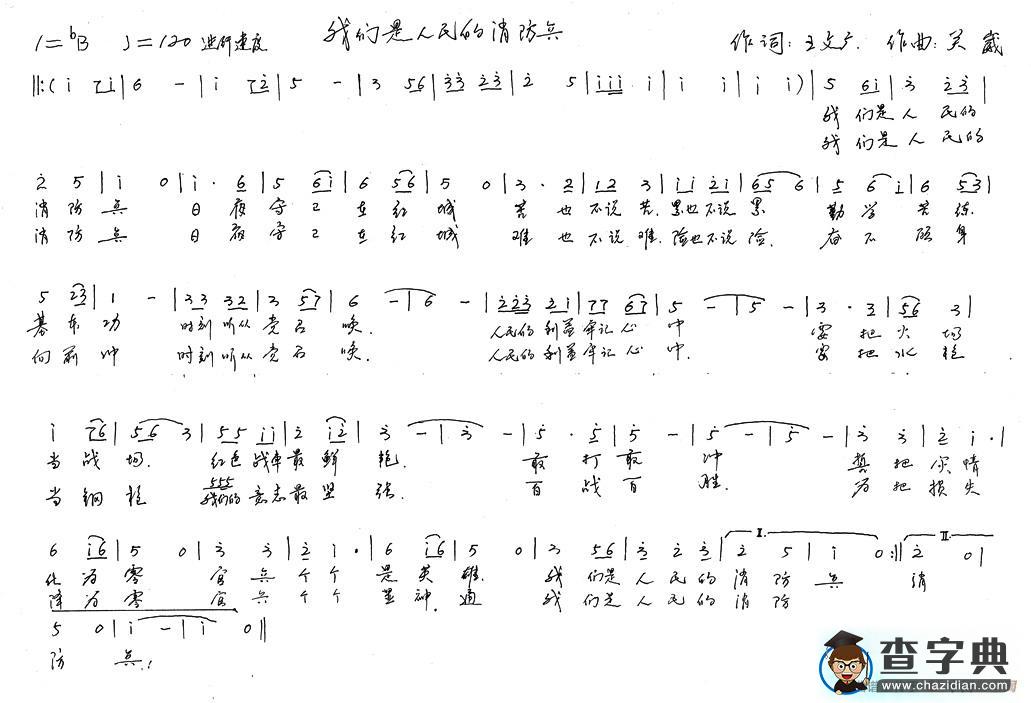 我们是人民的消防兵
1=bB ♩=120 进行速度 作词:王文广. 作曲:关崴
‖:(i 7i|6 -|i 7i2|5 -|3 56|33 23|2 5|iii i|i i|i i)|5 6i|3 23|
我们是人民的
我们是人民的
2 5|i 0|i· 6|5 6i|6 56|5 0|3· 2|12 3|ii 2i|65 6|5 6 i|6 53|
消防兵 日夜守卫在红城 苦也不说苦.累也不说累 勤学苦练
消防兵 日夜守卫在红城 难也不说难.险也不说险. 奋不顾身
5 23|1 -|33 32|3 57|6 -|6 -|223 2i|77 67|5 -|5 -|3· 3|56 3|
基本功 时刻听从党召唤. 人民的利益牢记心中 要把火场
向前冲 时刻听从党召唤. 人民的利益牢记心中. 要把水枪
i 76|56 3|55 ii|2 i2|3 -|3 -|5· 5|5 -|5 -|5 -|3 3|2 i·|
当战场. 红色战车最鲜艳. 敢打敢冲 誓把灾情
555
当钢枪 我们的意志最坚强. 百战百胜. 为把损失
6 i6|5 0|3 3|2 i·|6 i6|5 0|3 56|3 2 3|2 5|i 0:‖2 0|
I. II.
化为零 官兵个个是英雄. 我们是人民的消防兵 消
降为零 官兵个个显神通 我们是人民的消防
5 0|i -|i 0‖
防兵!
查字典
www.chazidian.com